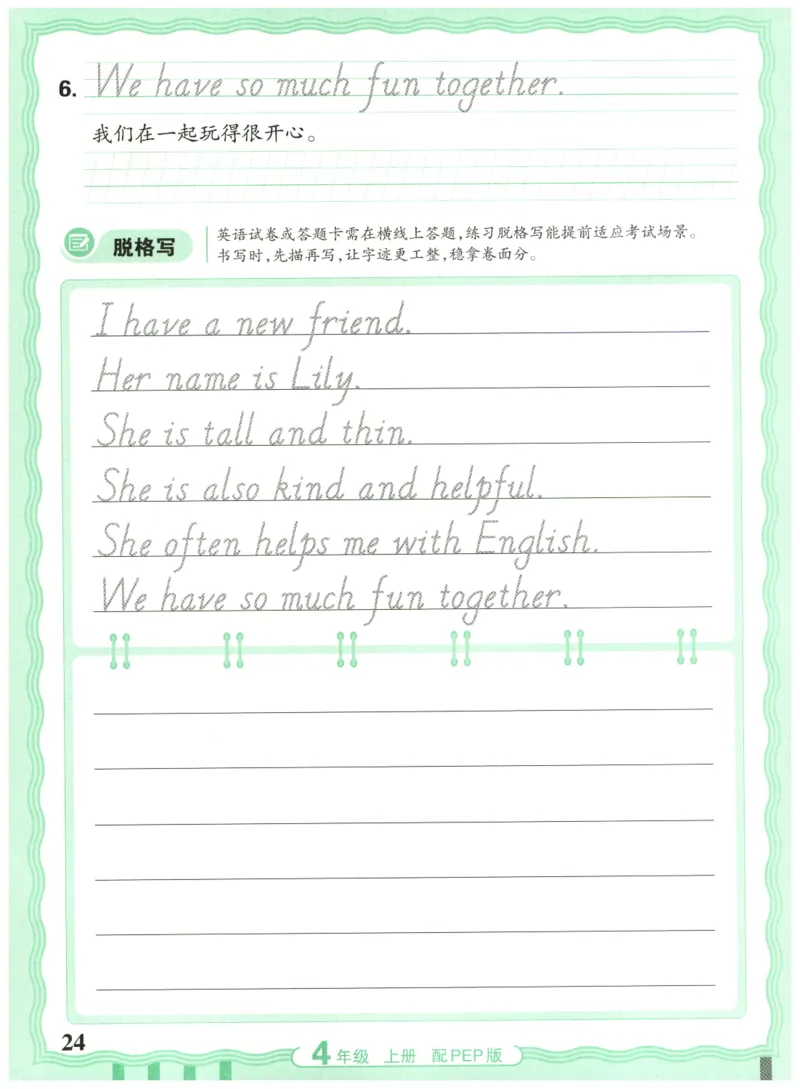 6. We have so much fun together.
我们在一起玩得很开心。
脱格写
英语试卷或答题卡需在横线上答题,练习脱格写能提前适应考试场景。
书写时,先描再写,让字迹更工整,稳拿卷面分。
I have a new friend.
Her name is Lily.
She is tall and thin.
She is also kind and helpful.
She often helps me with English.
We have so much fun together.
24
4年级 上册 配PEP版